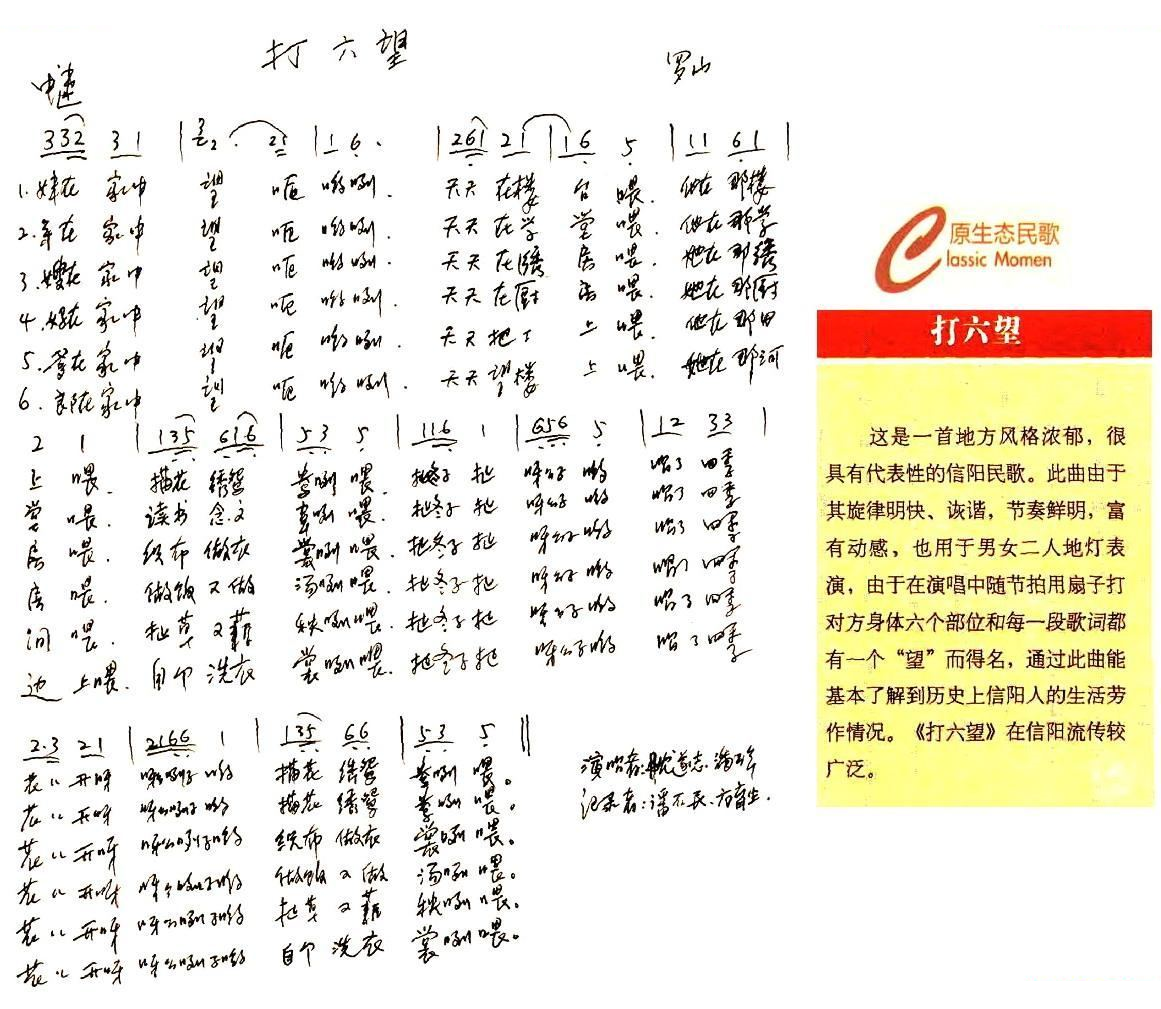 打六望
罗山
中速
332 31 | 2. 21 | 1 6. | 261 21 | 16 5 | 11 61 |
1. 妹在 家中 望 呃 哟咧. 天天 在楼 台 喂. 她在 那楼
2. 在 家中 望 呃 哟咧. 天天 在学 堂 喂. 他在 那学
3. 嫂在 家中 望 呃 哟咧. 天天 在绣 房 喂. 她在 那绣
4. 在 家中 望 呃 哟咧. 天天 在厨 房 喂. 她在 那厨
5. 爹在 家中 望 呃 哟咧. 天天 把丁 上 喂. 他在 那田
6. 在 家中 望 呃 哟咧. 天天 望楼 上 喂. 她在 那河
2 1 | 135 616 | 53 5 | 116 1 | 656 5 | 12 33 |
上 喂. 描花 绣鸳 鸯咧 喂. 冬子 呀 哟 四季
堂 喂. 读书 念文 章咧 喂. 冬子 呀 哟 四季
房 喂. 织布 做衣 裳咧 喂. 冬子 呀 哟 四季
房 喂. 做饭 又做 汤咧 喂. 冬子 呀 哟 四季
间 喂. 扯草 又薅 秧咧 喂. 冬子 呀 哟 四季
边 上喂. 自个 洗衣 裳咧喂. 冬子 呀 哟 四季
2.3 21 | 2166 1 | 135 66 | 53 5 ‖
花儿 开呀 描花 绣鸳 鸯咧 喂。
花儿 开呀 描花 绣鸳 鸯咧 喂。
花儿 开呀 织布 做衣 裳咧 喂。
花儿 开呀 做饭 又做 汤咧 喂。
花儿 开呀 扯草 又薅 秧咧 喂。
花儿 开呀 自个 洗衣 裳咧 喂。
演唱者:
记录者:
原生态民歌
Classic Momen
打六望
这是一首地方风格浓郁，很
具有代表性的信阳民歌。此曲由于
其旋律明快、诙谐，节奏鲜明，富
有动感，也用于男女二人地灯表
演，由于在演唱中随节拍用扇子打
对方身体六个部位和每一段歌词都
有一个“望”而得名，通过此曲能
基本了解到历史上信阳人的生活劳
作情况。《打六望》在信阳流传较
广泛。